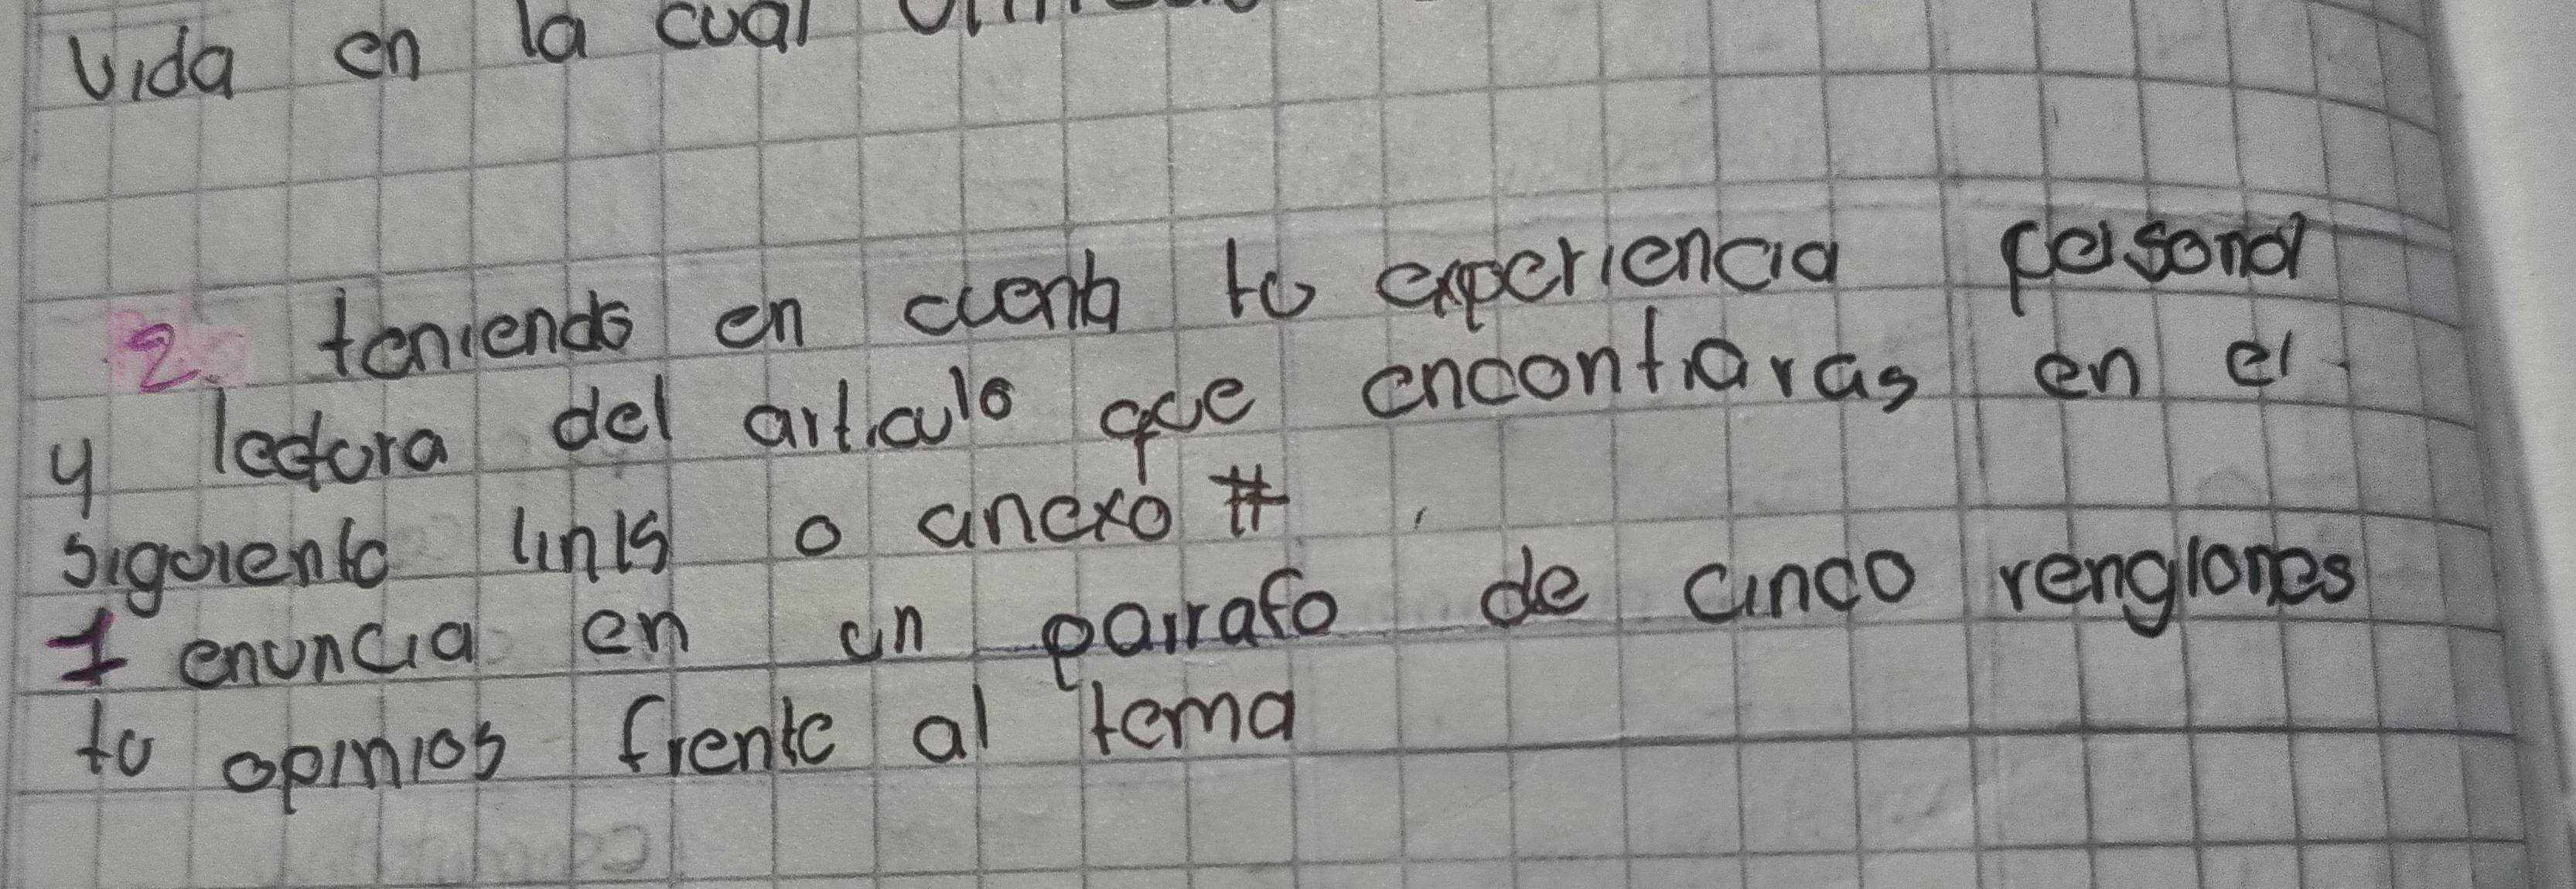 vida en la cual
2. teniendo en cuenta tu experiencia pesonal
y lectura del articulo que encontraras en el
siguiente links o anexo #
1 enuncia en un parrafo de cinco renglones
tu opinios frente al tema